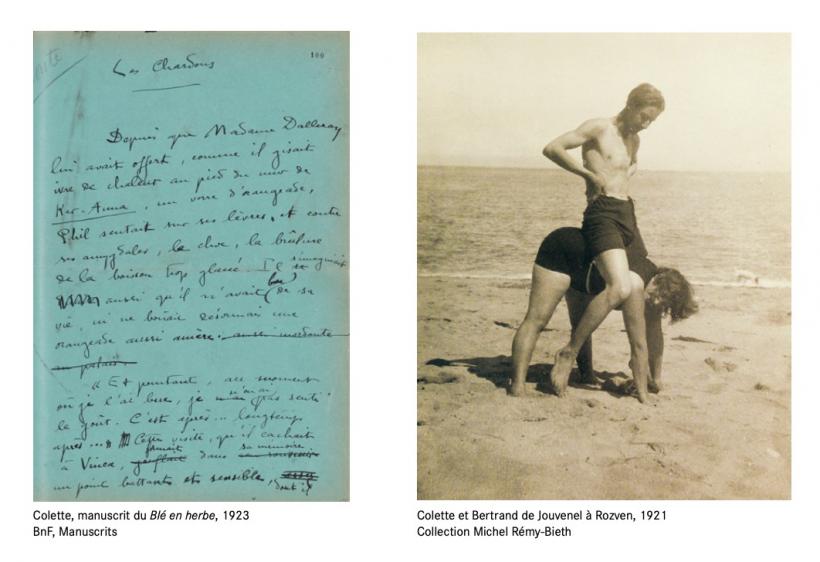 100
Les Chardons
Depuis que Madame Dalleray
lui avait offert, comme il gisait
ivre de chaleur au pied du mur de
Ker-Anna, un verre d'orangeade,
Phil sentait sur ses lèvres, et contre
ses amygdales, le choc, la brûlure
de la boisson trop glacé Il s'imaginait
aussi qu'il n'avait bu de sa
vie, ni ne boirait désormais une
orangeade aussi amère. aussi mordante
au palais.
« Et pourtant, au moment
où je l'ai bue, je n'en ai pas senti
le goût. C'est après... longtemps
après... » Cette visite, qu'il cachait
à Vinca, formait dans sa mémoire
un point battant et sensible, dont il
Colette, manuscrit du Blé en herbe, 1923
BnF, Manuscrits
Colette et Bertrand de Jouvenel à Rozven, 1921
Collection Michel Rémy-Bieth